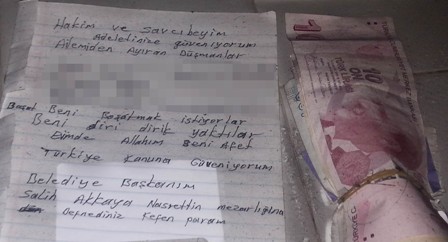 Hakim ve Savcıbeyim
Adeletinize güveniyorum
Ailemiden Ayıran Düşmanlar
Boşat Beni Boşatmak istiyorlar
Beni diri dirik yaktılar
Allahım Beni Afet
Türkiye Kanuna Güveniyorum
Belediye Başkanım
Salih Akkaya Nasrettin mezarlığına
Defnediniz Kefen param
10